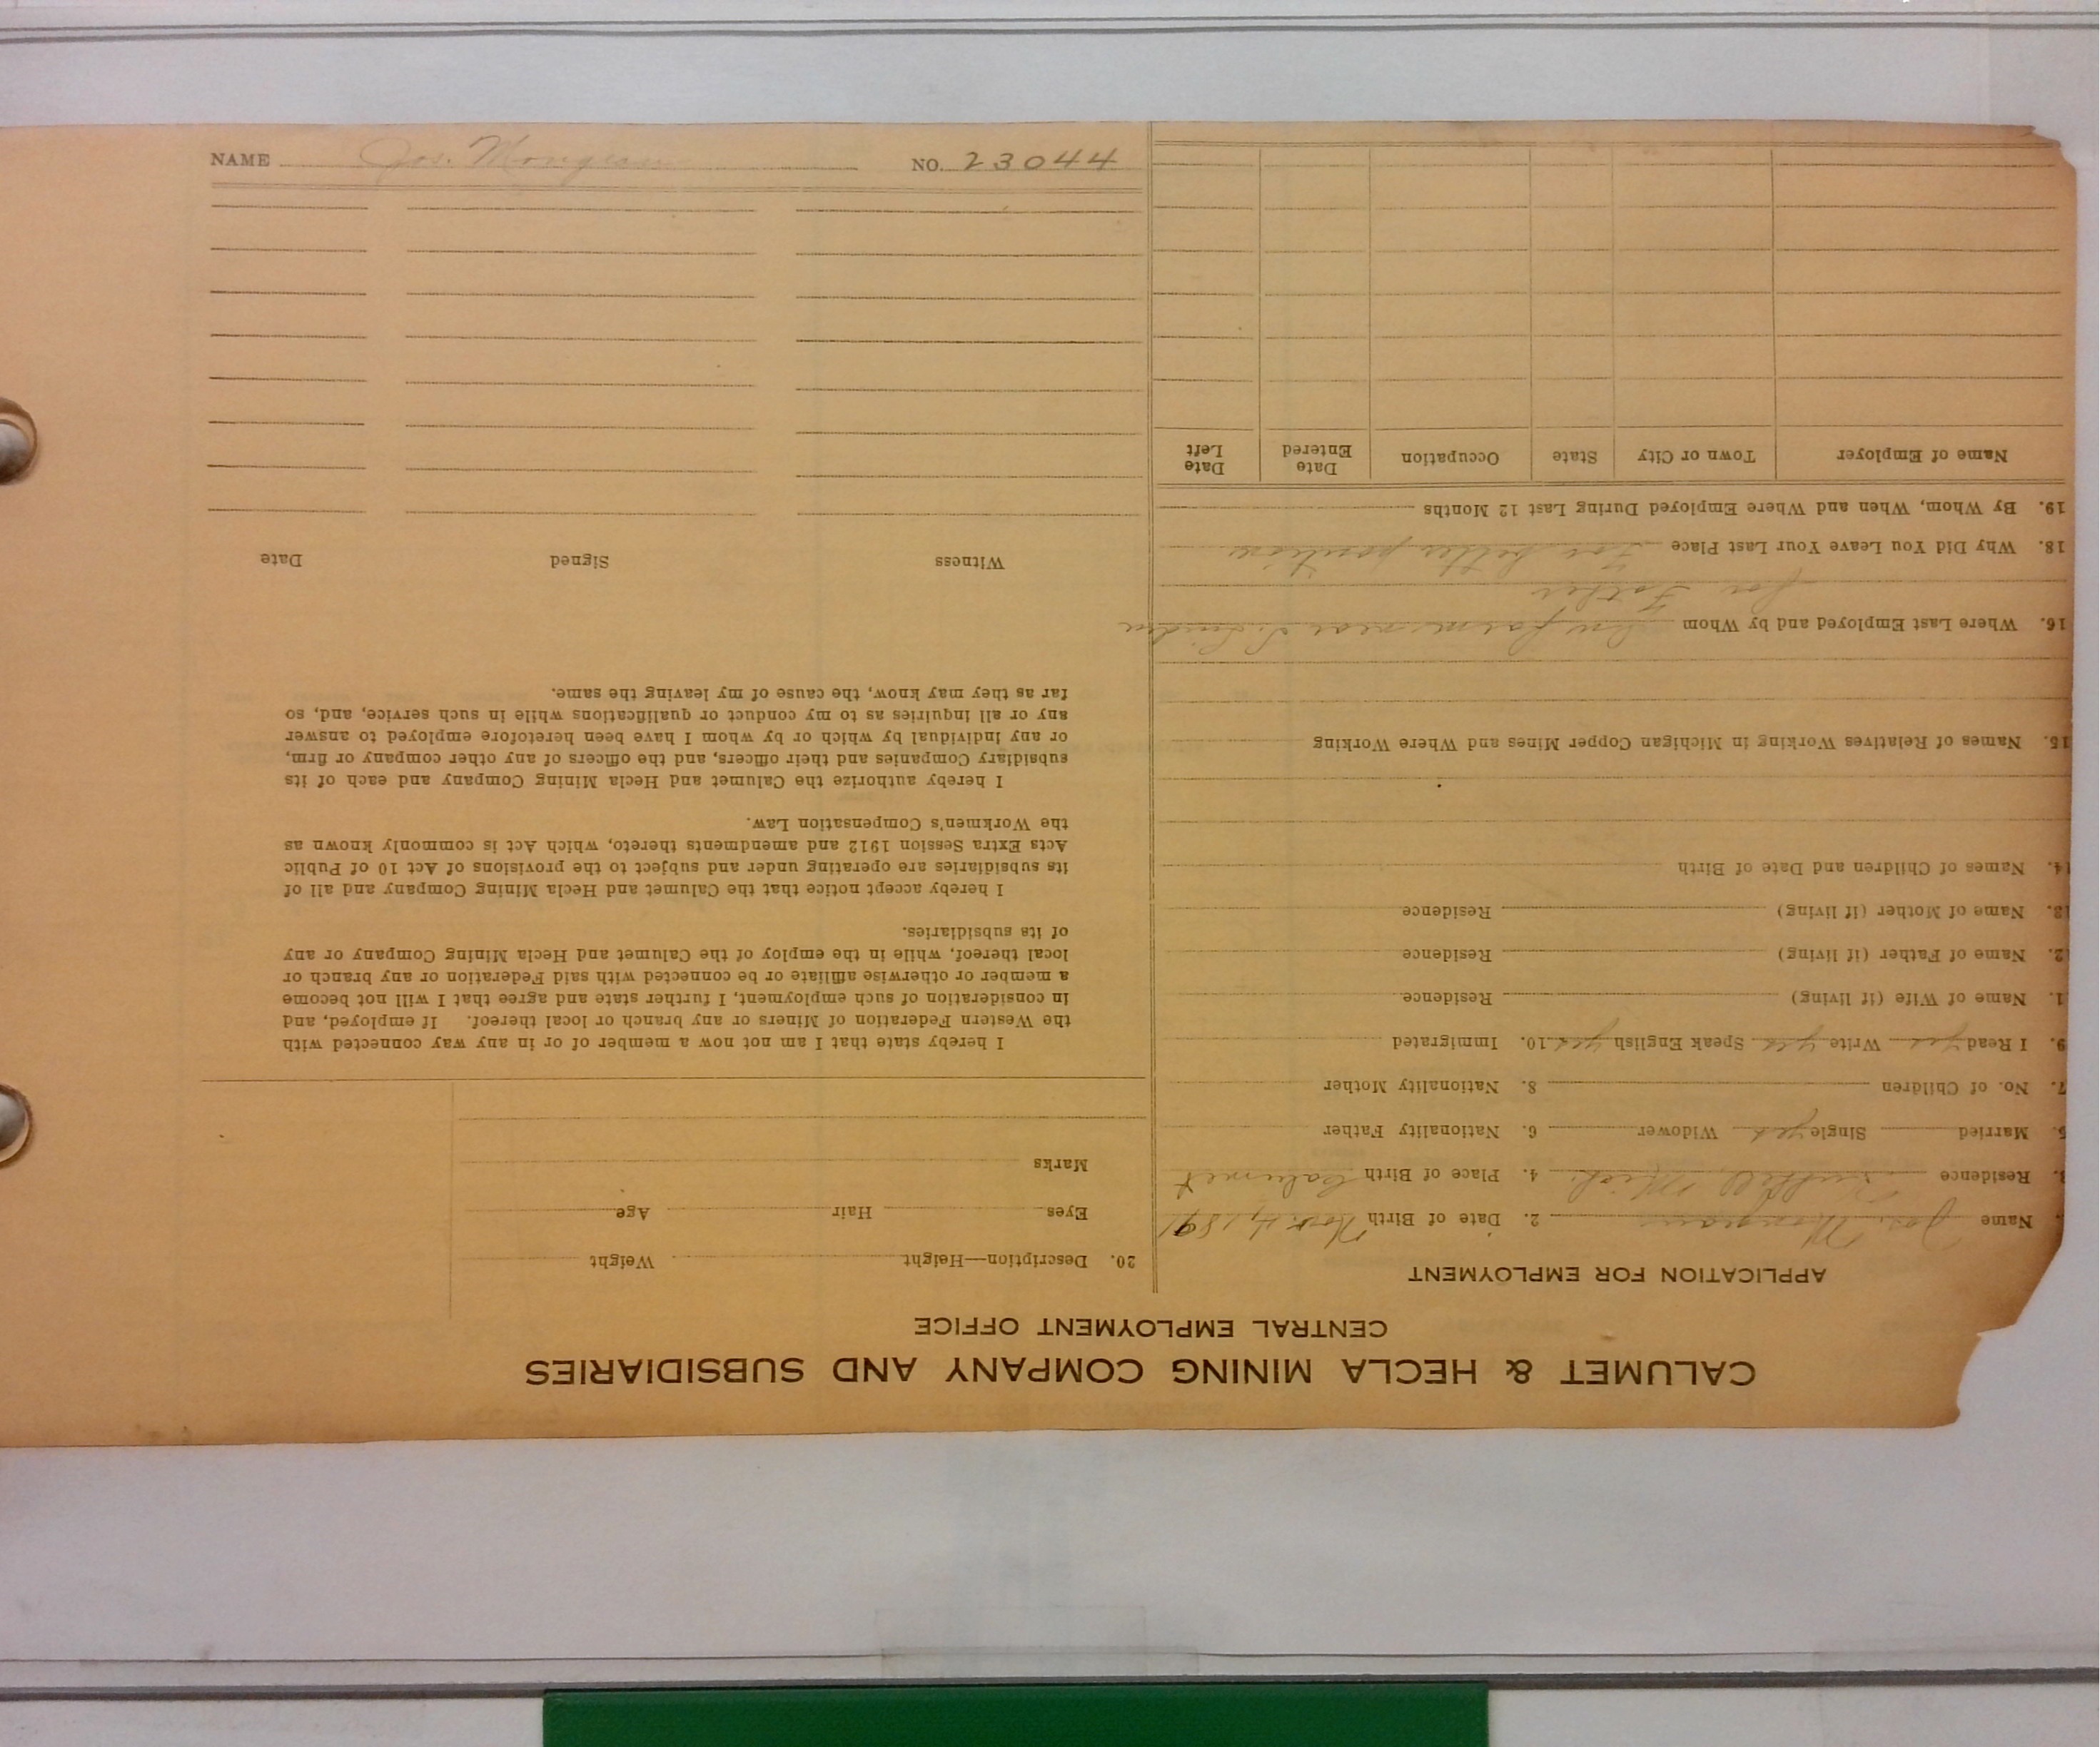 CALUMET & HECLA MINING COMPANY AND SUBSIDIARIES
CENTRAL EMPLOYMENT OFFICE
APPLICATION FOR EMPLOYMENT
Name Jos. 2. Date of Birth
Residence Mich. 4. Place of Birth Calumet
5. Married Single yes Widower 6. Nationality Father
7. No. of Children 8. Nationality Mother
9. I Read yes Write yes Speak English yes 10. Immigrated
1. Name of Wife (if living) Residence
2. Name of Father (if living) Residence
13. Name of Mother (if living) Residence
14. Names of Children and Date of Birth
15. Names of Relatives Working in Michigan Copper Mines and Where Working
16. Where Last Employed and by Whom On farm near
for Father
18. Why Did You Leave Your Last Place For better position
19. By Whom, When and Where Employed During Last 12 Months
Name of Employer Town or City State Occupation Date Entered Date Left
20. Description—Height Weight
Eyes Hair Age
Marks
I hereby state that I am not now a member of or in any way connected with
the Western Federation of Miners or any branch or local thereof. If employed, and
in consideration of such employment, I further state and agree that I will not become
a member or otherwise affiliate or be connected with said Federation or any branch or
local thereof, while in the employ of the Calumet and Hecla Mining Company or any
of its subsidiaries.
I hereby accept notice that the Calumet and Hecla Mining Company and all of
its subsidiaries are operating under and subject to the provisions of Act 10 of Public
Acts Extra Session 1912 and amendments thereto, which Act is commonly known as
the Workmen's Compensation Law.
I hereby authorize the Calumet and Hecla Mining Company and each of its
subsidiary Companies and their officers, and the officers of any other company or firm,
or any individual by which or by whom I have been heretofore employed to answer
any or all inquiries as to my conduct or qualifications while in such service, and, so
far as they may know, the cause of my leaving the same.
Witness Signed Date
NAME Jos. NO. 23044